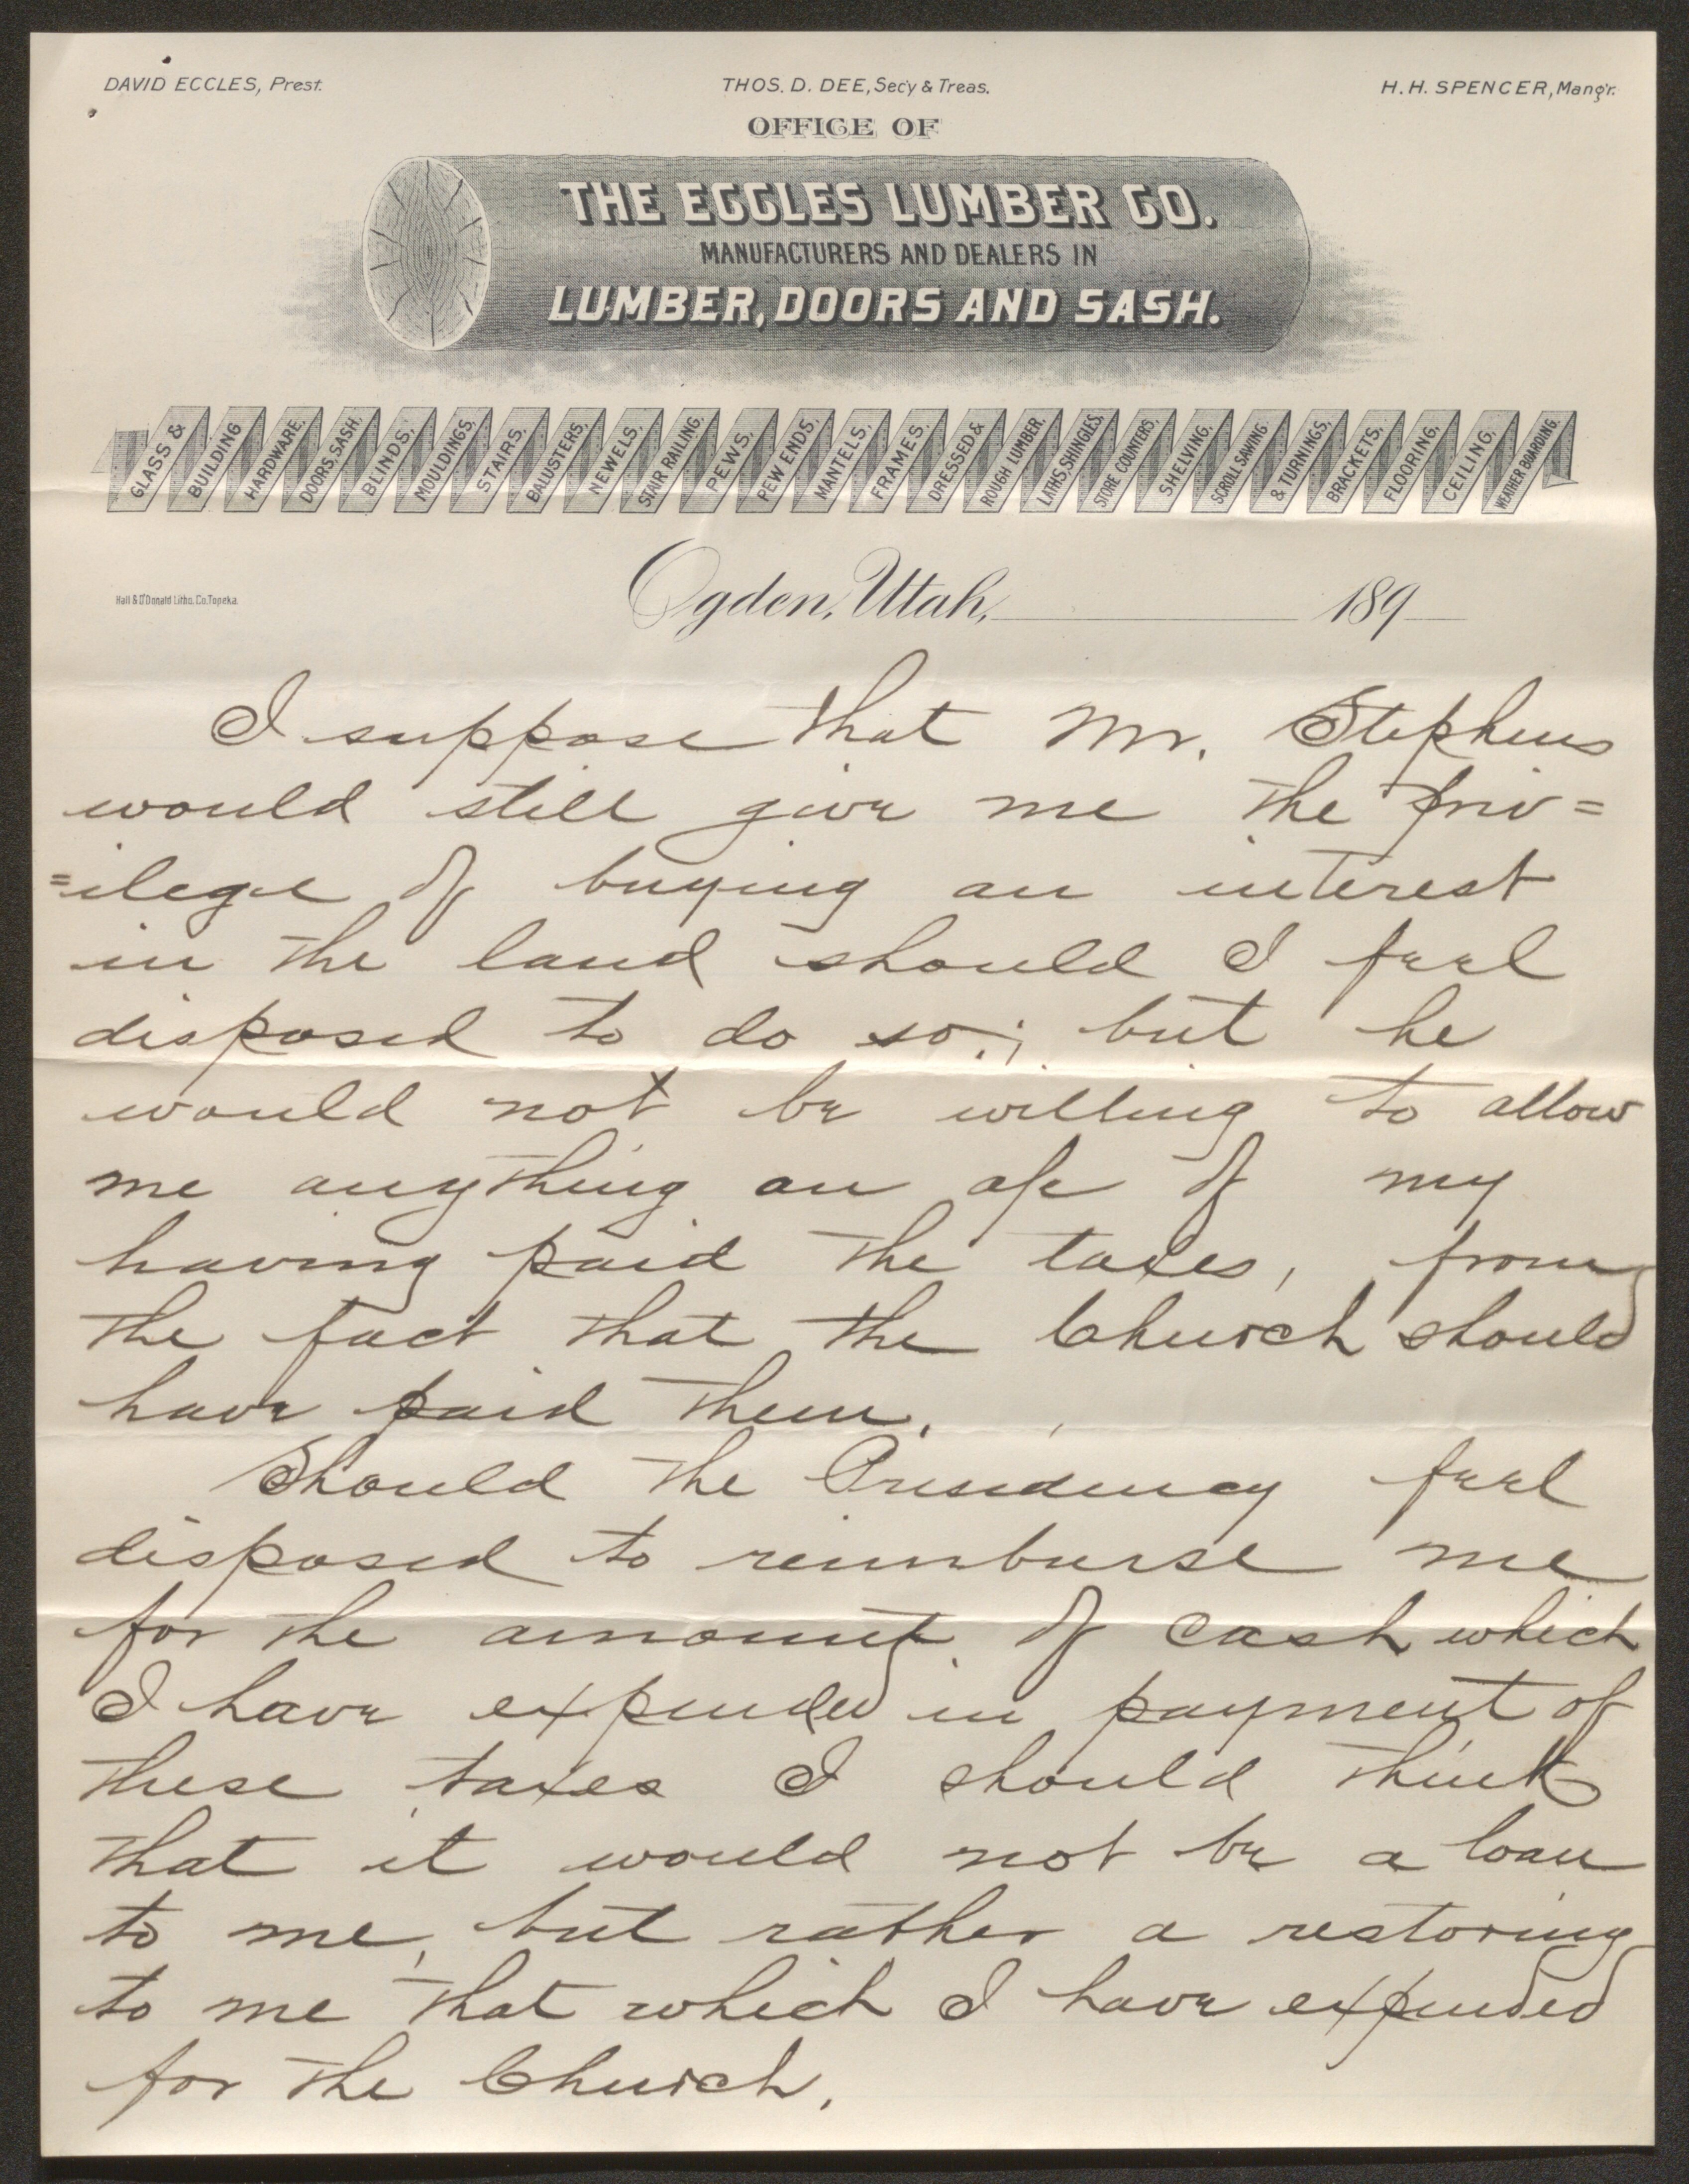 DAVID ECCLES, Prest.
THOS. D. DEE, Sec'y & Treas.
H. H. SPENCER, Mang'r.
OFFICE OF
THE ECCLES LUMBER CO.
MANUFACTURERS AND DEALERS IN
LUMBER, DOORS AND SASH.
GLASS & BUILDING HARDWARE. DOORS, SASH, BLINDS, MOULDINGS. STAIRS. BALUSTERS. NEWELS. STAIR RAILING. PEWS. PEW ENDS. MANTELS. FRAMES. DRESSED & ROUGH LUMBER. LATHS, SHINGLES. STORE COUNTERS. SHELVING. SCROLL SAWING & TURNINGS. BRACKETS. FLOORING. CEILING. WEATHER BOARDING.
Hall & O'Donald Litho. Co. Topeka.
Ogden, Utah, 189
I suppose that Mr. Stephens
would still give me the priv=
=ilege of buying an interest
in the land should I feel
disposed to do so; but he
would not be willing to allow
me anything on a/c of my
having paid the taxes, from
the fact that the Church should
have paid them.
Should the Presidency feel
disposed to reimburse me
for the amount of cash which
I have expended in payment of
these taxes I should think
that it would not be a loan
to me, but rather a restoring
to me that which I have expended
for the Church.